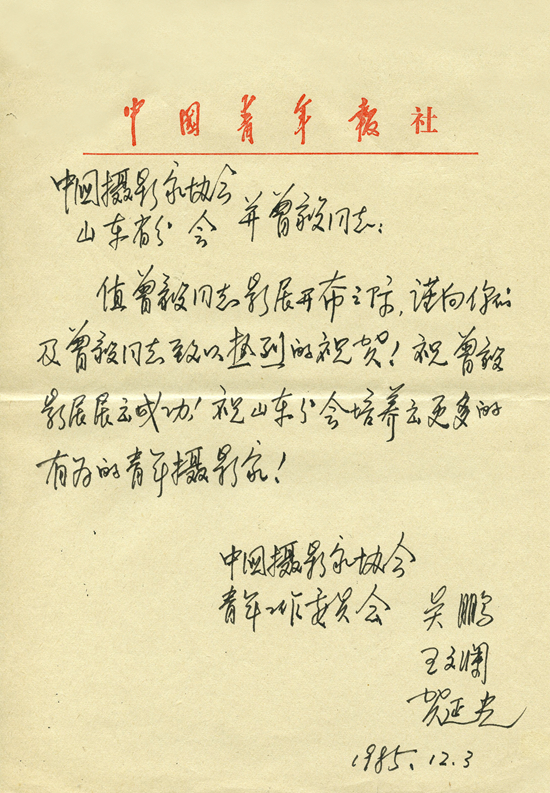 中国青年报社
中国摄影家协会
山东省分会 并曾毅同志：
值曾毅同志影展开布之际，谨向你们
及曾毅同志致以热烈的祝贺！祝曾毅
影展展出成功！祝山东分会培养出更多的
有为的青年摄影家！
中国摄影家协会
青年工作委员会 吴鹏
王文澜
贺延光
1985.12.3